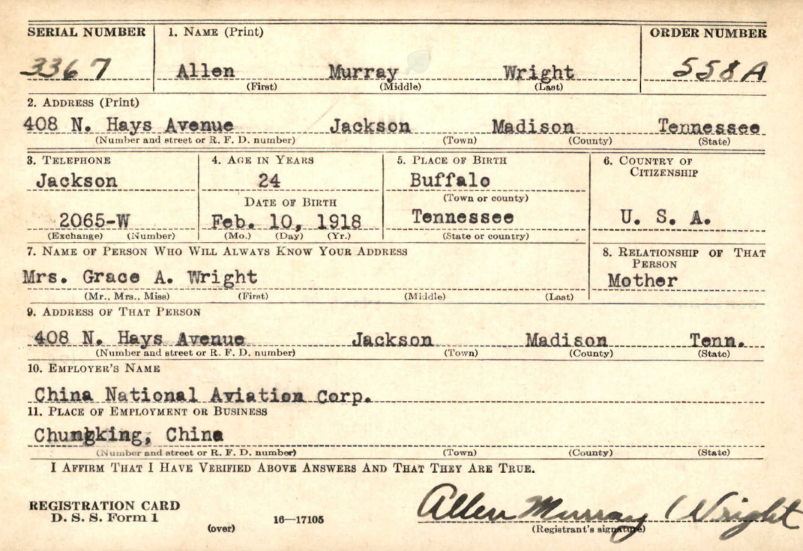 SERIAL NUMBER 1. NAME (Print) ORDER NUMBER
3367 Allen Murray Wright 558A
(First) (Middle) (Last)
2. ADDRESS (Print)
408 N. Hays Avenue Jackson Madison Tennessee
(Number and street or R. F. D. number) (Town) (County) (State)
3. TELEPHONE 4. AGE IN YEARS 5. PLACE OF BIRTH 6. COUNTRY OF CITIZENSHIP
Jackson 24 Buffalo
DATE OF BIRTH (Town or county)
2065-W Feb. 10, 1918 Tennessee U. S. A.
(Exchange) (Number) (Mo.) (Day) (Yr.) (State or country)
7. NAME OF PERSON WHO WILL ALWAYS KNOW YOUR ADDRESS 8. RELATIONSHIP OF THAT PERSON
Mrs. Grace A. Wright Mother
(Mr., Mrs., Miss) (First) (Middle) (Last)
9. ADDRESS OF THAT PERSON
408 N. Hays Avenue Jackson Madison Tenn.
(Number and street or R. F. D. number) (Town) (County) (State)
10. EMPLOYER'S NAME
China National Aviation Corp.
11. PLACE OF EMPLOYMENT OR BUSINESS
Chungking, China
(Number and street or R. F. D. number) (Town) (County) (State)
I AFFIRM THAT I HAVE VERIFIED ABOVE ANSWERS AND THAT THEY ARE TRUE.
REGISTRATION CARD Allen Murray Wright
D. S. S. Form 1 (over) 16—17105 (Registrant's signature)